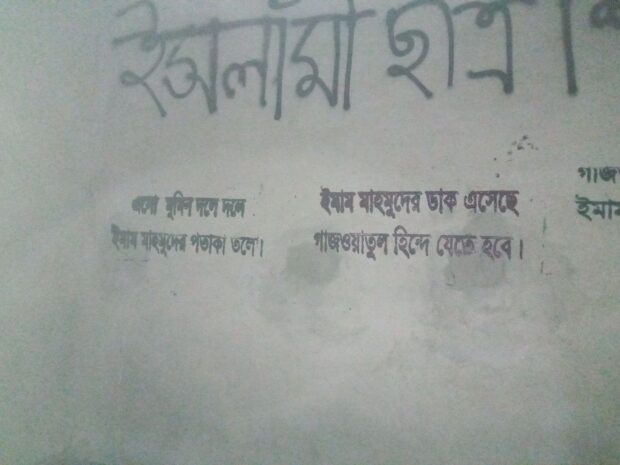 ইসলামী ছাত্র
এসো মুমিন দলে দলে
ইমাম মাহমুদের পতাকা তলে।
ইমাম মাহমুদের ডাক এসেছে
গাজওয়াতুল হিন্দে যেতে হবে।
গাজ
ইমাম